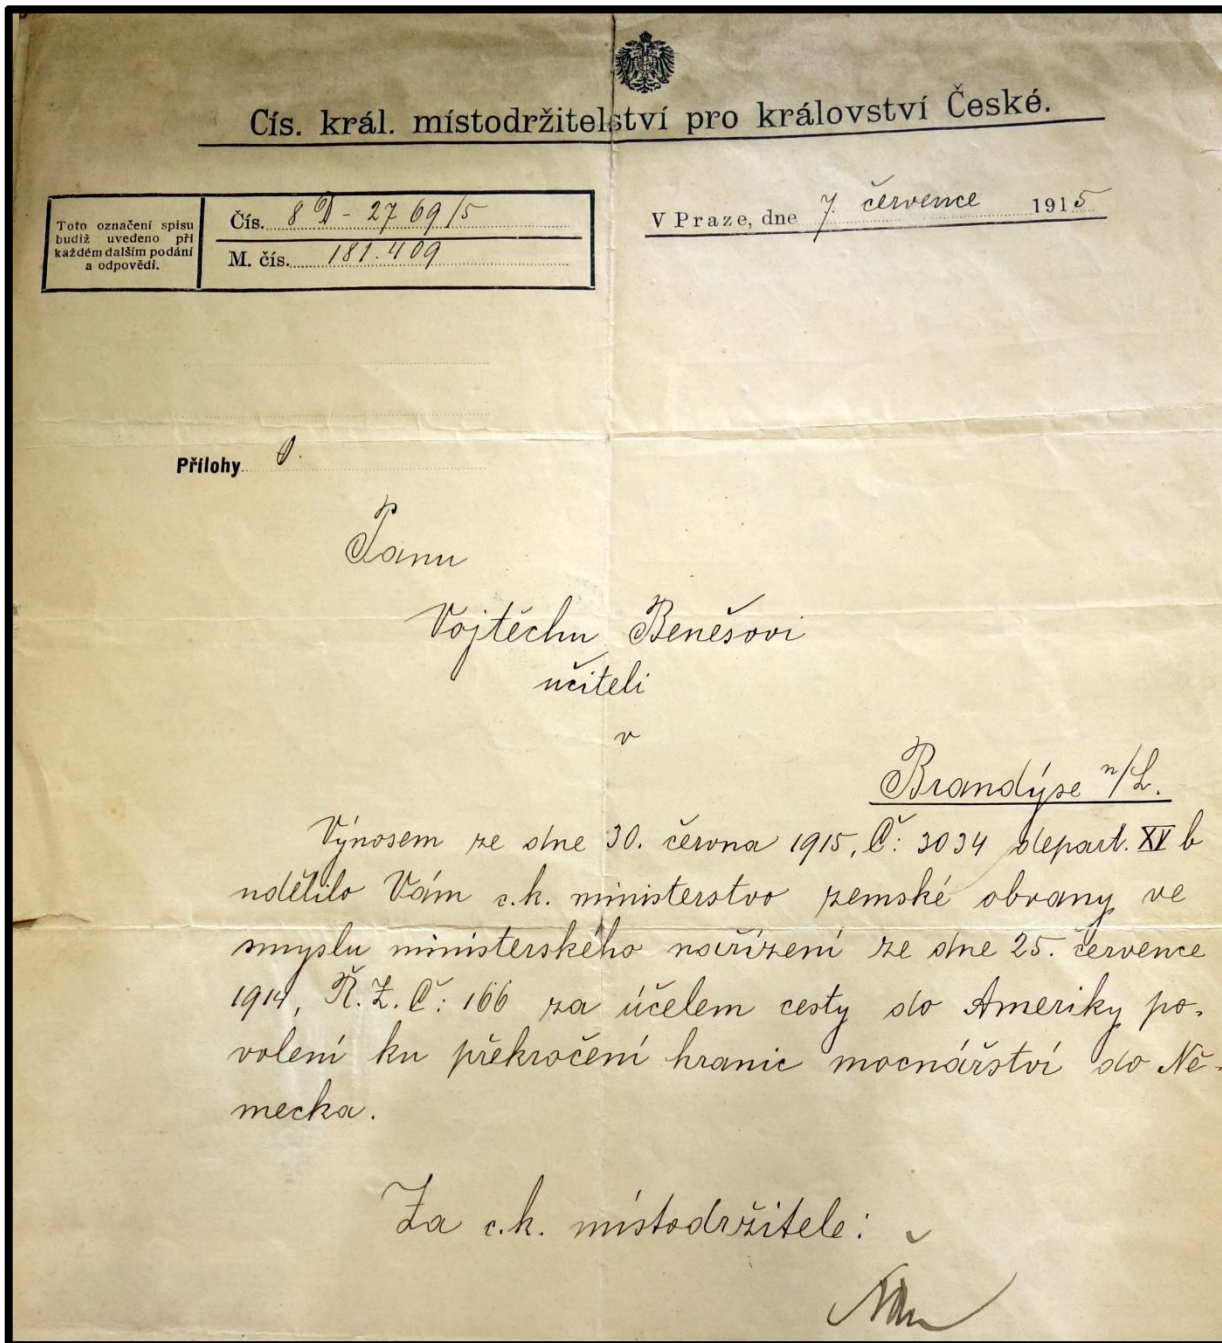 Cís. král. místodržitelství pro království České.
Toto označení spisu
budiž uvedeno při
každém dalším podání
a odpovědi.
Čís. 8 D - 2769/5
M. čís. 181.409
V Praze, dne 7. července 1915
Přílohy
Panu
Vojtěchu Benešovi
učiteli
v
Brandýse n/L.
Výnosem ze dne 30. června 1915, Č: 3034 depart. XV b
udělilo Vám c.k. ministerstvo zemské obrany ve
smyslu ministerského nařízení ze dne 25. července
1914, Ř. Z. Č: 166 za účelem cesty do Ameriky po-
volení ku překročení hranic mocnářství do Ně-
mecka.
Za c.k. místodržitele: